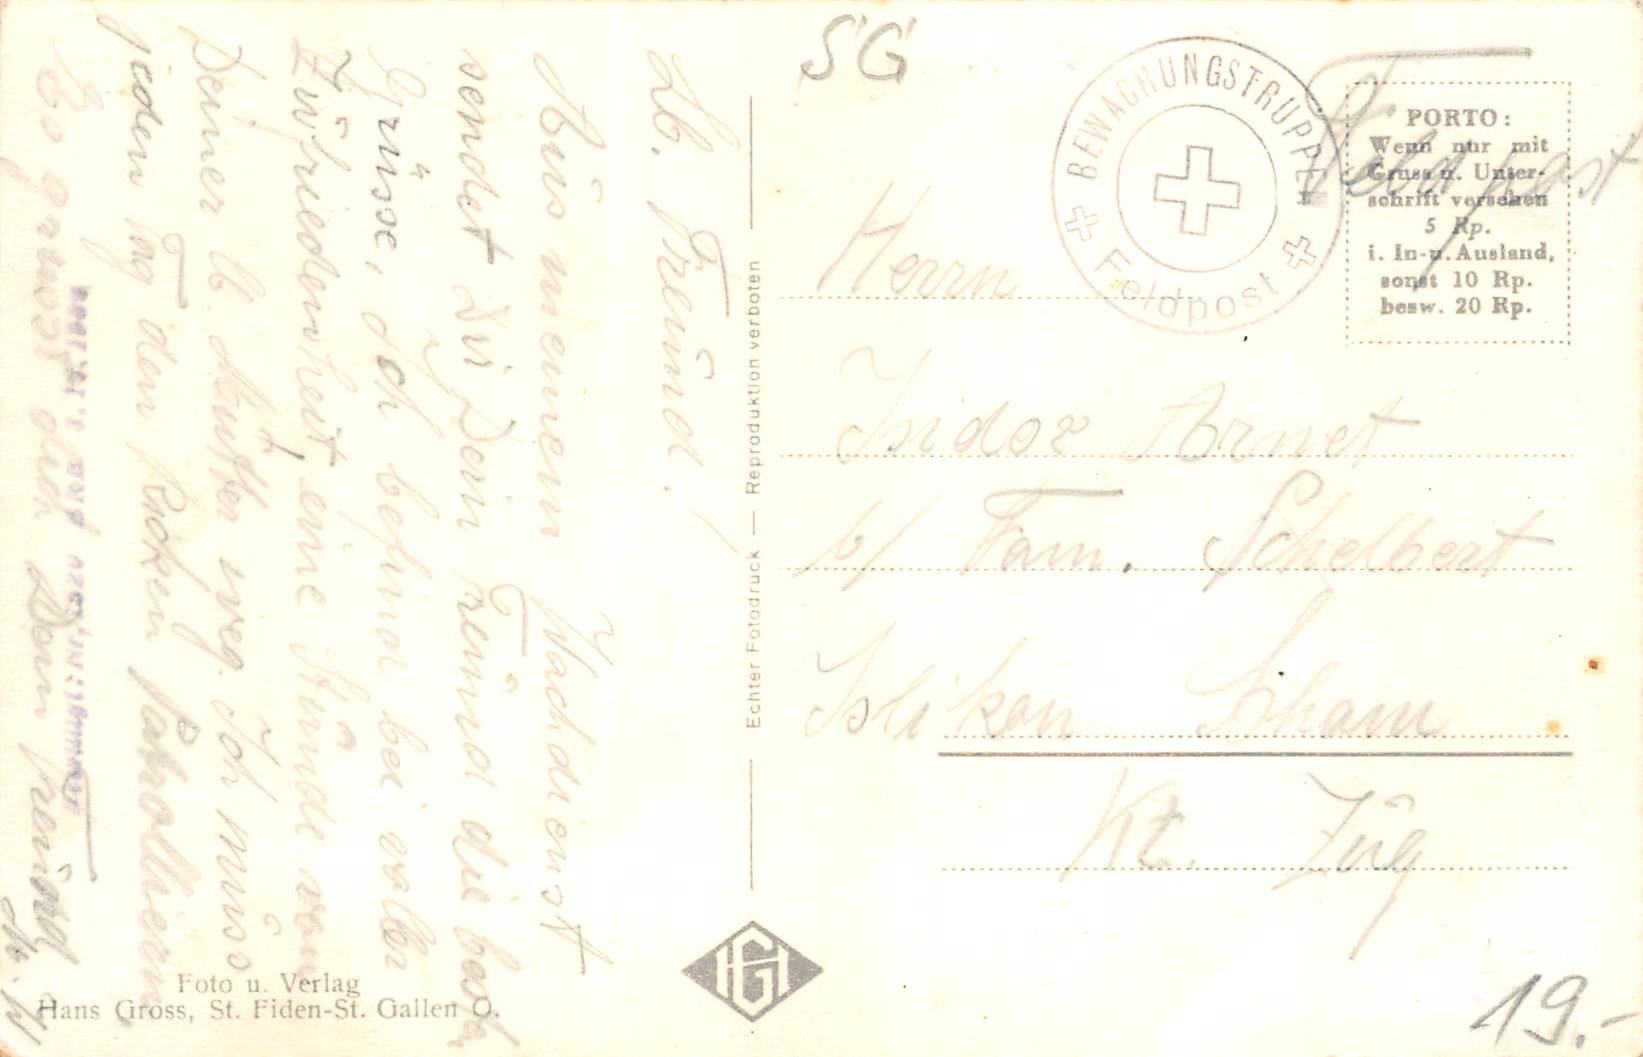 SG
BEWACHUNGSTRUPPE
Feldpost
Feldpost
PORTO:
Wenn nur mit
Gruss u. Unter-
schrift versehen
5 Rp.
i. In- u. Ausland,
sonst 10 Rp.
besw. 20 Rp.
Herrn
Isidor Arnet
b/ Fam. Schelbert
Islikon Cham
Kt. Zug
19.-
Echter Fotodruck — Reproduktion verboten
Lb. Freund!
Aus meinem Wachdienst
sendet Dir Dein Freund die best.
Grüsse, ich befind bei voller
Zufriedenheit, eine Stunde von
Deiner lb Mutter weg. Ich muss
jeden Tag den Ricken patrollieren
Es grüsst dich Dein Freund
Foto u. Verlag
Hans Gross, St. Fiden-St. Gallen O.
HG